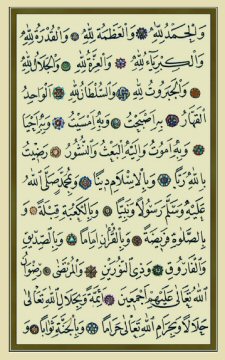 وَالْحَمْدُ لِلّٰهِ وَالْعَظَمَةُ لِلّٰهِ وَالْقُدْرَةُ لِلّٰهِ
وَالْكِبْرِيَاءُ لِلّٰهِ وَالْعِزَّةُ لِلّٰهِ وَالْجَلَالُ لِلّٰهِ
وَالْجَبَرُوتُ لِلّٰهِ وَالسُّلْطَانُ لِلّٰهِ الْوَاحِدِ
الْقَهَّارِ بِرَاصْبَحْتُ وَبِهِ اَمْسَيْتُ وَبِهِ اَحْيَا
وَبِهِ اَمُوتُ وَاِلَيْهِ الْبَعْثُ وَالنُّشُورُ رَضِيتُ
بِاللّٰهِ رَبًّا وَبِالْاِسْلَامِ دِينًا وَبِمُحَمَّدٍ صَلَّى اللّٰهُ
عَلَيْهِ وَسَلَّمَ رَسُولًا وَنَبِيًّا وَبِالْكَعْبَةِ قِبْلَةً وَ
بِالصَّلٰوةِ فَرِيضَةً وَبِالْقُرْاٰنِ اِمَامًا وَبِالصِّدِّيقِ
وَالْفَارُوقِ وَذِي النُّورَيْنِ وَالْمُرْتَضٰى رِضْوَانُ
اللّٰهِ تَعَالٰى عَلَيْهِمْ اَجْمَعِينَ اَئِمَّةً وَبِحَلَالِ اللّٰهِ تَعَالٰى
حَلَالًا وَبِحَرَامِ اللّٰهِ تَعَالٰى حَرَامًا وَبِالْجَنَّةِ ثَوَابًا وَ